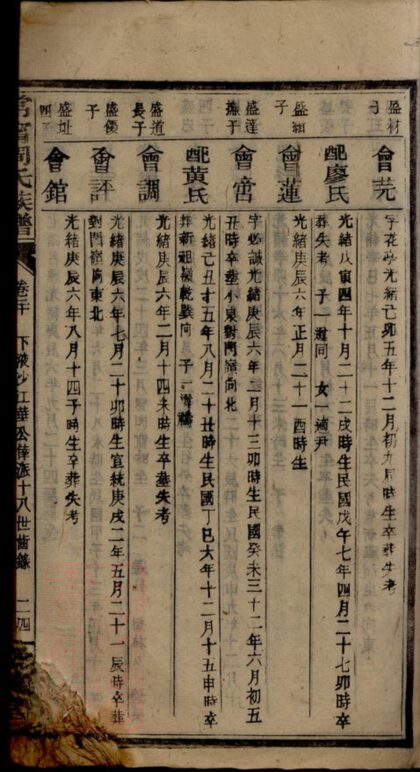 盛材子
會芫
字花亭光緒己卯五年十二月初九辰時生卒葬失考
配廖氏
光緒戊寅四年十月二十二戌時生民國戊午七年四月二十七卯時卒
葬失考 子一 道同 女一 適尹
子
會蓮
光緒庚辰六年正月二十一酉時生
盛達撫子
會
字必誠光緒庚辰六年二月十三卯時生民國癸未三十二年六月初五
丑時卒葬小東對門嶺向北
配黃氏
光緒己丑十五年八月二十丑時生民國丁巳六年十二月十五申時卒
葬新祖嶺乾巽向 子一
盛道長子
會調
光緒庚辰六年二月十四未時生卒葬失考
盛優子
會評
光緒庚辰六年七月二十卯時生宣統庚戌二年五月二十一辰時卒葬
對門嶺向東北
盛址四子
會錧
光緒庚辰六年八月十四子時生卒葬失考
周氏族譜
卷二十
下陂沙江華公偉派十八世齒錄
二四